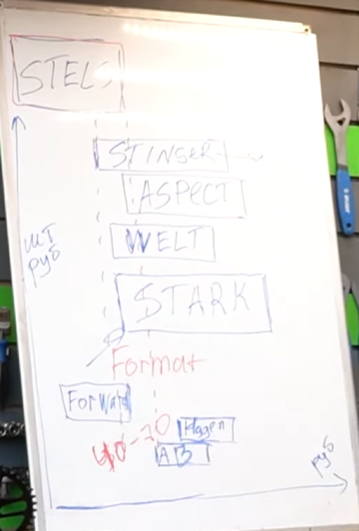 STELS
STINGER
ASPECT
WELT
шт
руб
STARK
Format
Forward
Hagen
40-70
AB
руб